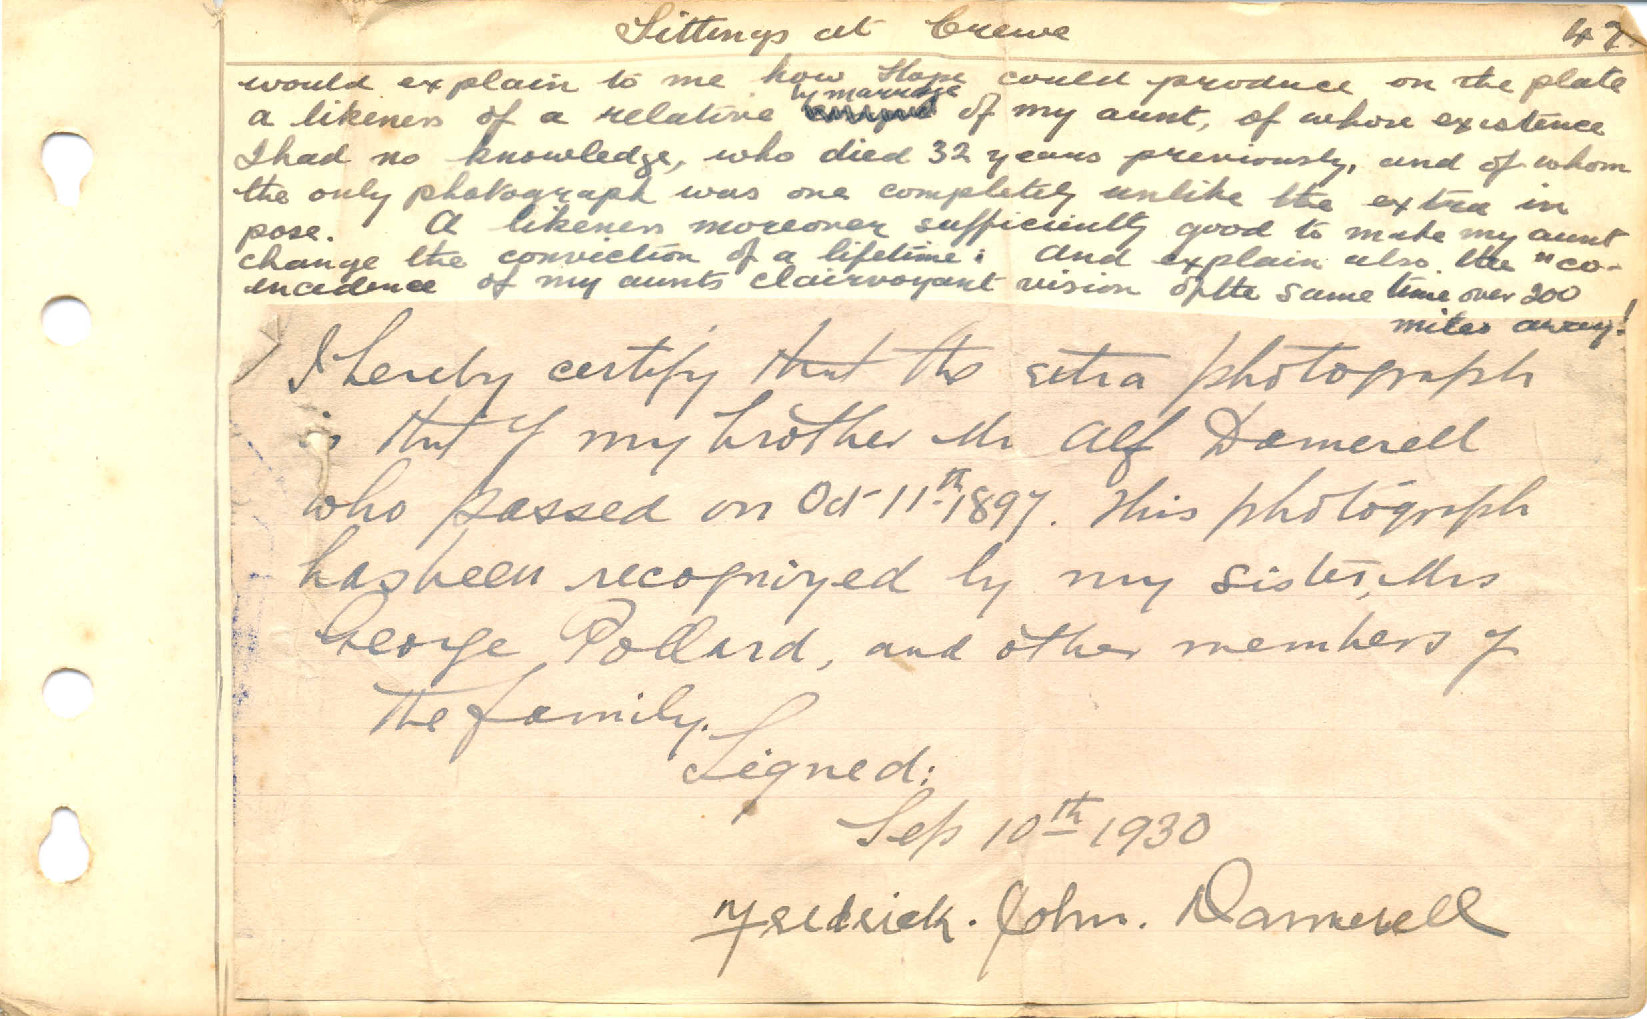 Sittings at Crewe 47.
would explain to me how Hope could produce on the plate
by marriage
a likeness of a relative of my aunt, of whose existence
I had no knowledge, who died 32 years previously, and of whom
the only photograph was one completely unlike the extra in
pose. A likeness moreover sufficiently good to make my aunt
change the conviction of a lifetime: And explain also the "co-
incidence of my aunts clairvoyant vision at the same time over 200
miles away!
I hereby certify that the extra photograph
is that of my brother Mr Alf Damerell
who passed on Oct 11th 1897. This photograph
has been recognized by my sister, Mrs
George Pollard, and other members of
the family.
Signed:
Sep 10th 1930
Fredrick. John. Damerell